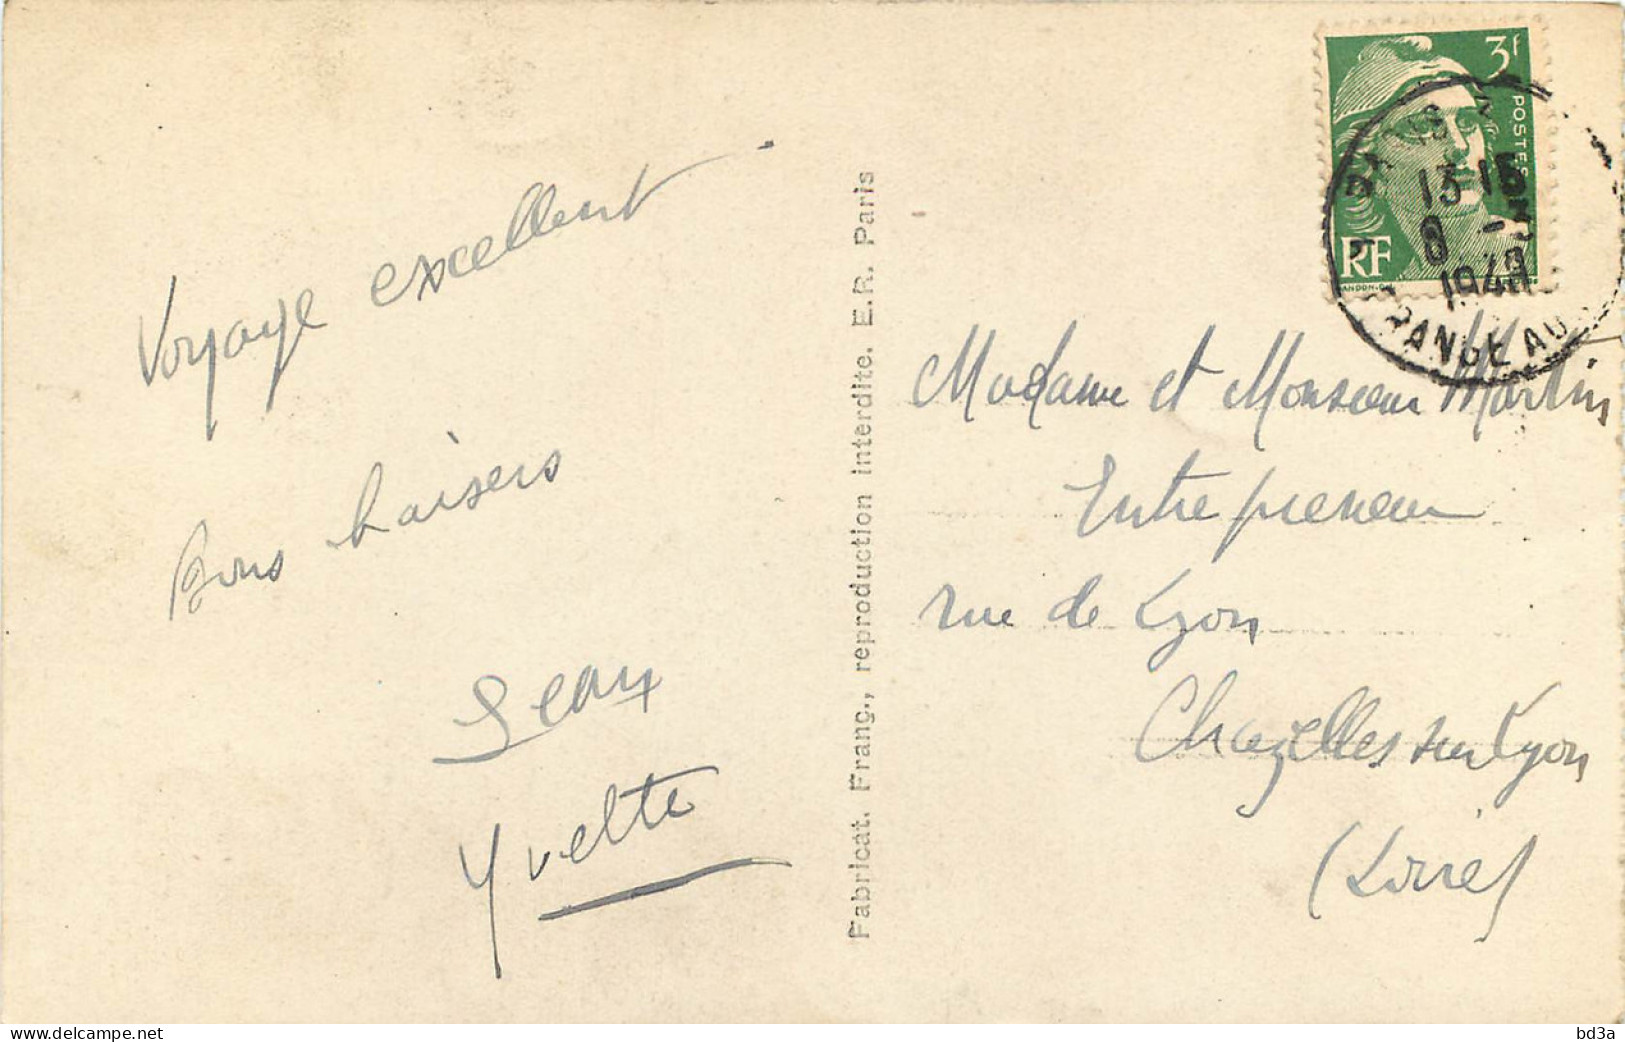 Voyage excellent
Bons baisers
Jean
Yvette
Fabricat. Franç., reproduction interdite. E.R. Paris
3f
POSTES
RF
PARIS
13 15
8 - 3
DANGEAU
Madame et Monsieur Martin
Entrepreneur
rue de Lyon
Chazelles sur Lyon
(Loire)
www.delcampe.net
bd3a